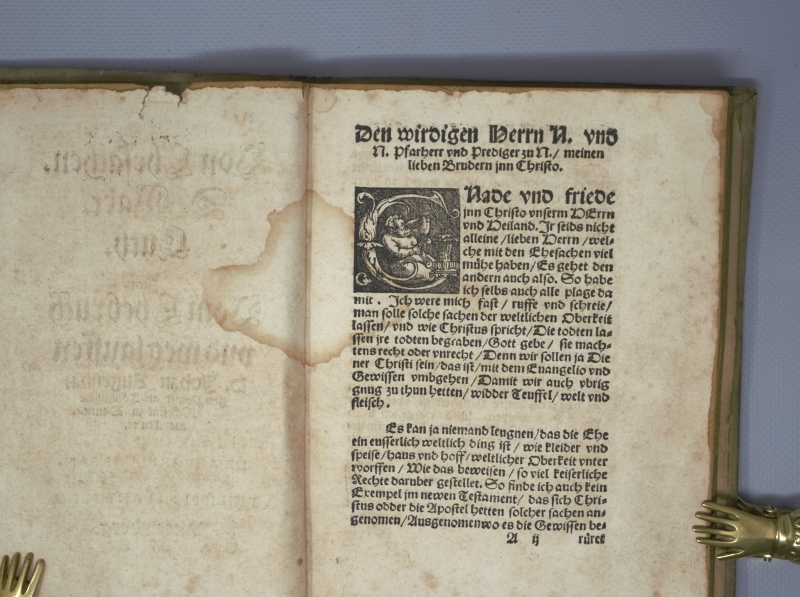 Den wirdigen Herrn N. vnd
N. Pfarherr vnd Prediger zu N./ meinen
lieben Brudern jnn Christo.
GNade vnd friede
jnn Christo vnserm HErrn
vnd Heiland. Jr seids nicht
alleine / lieben Herrn / wel-
che mit den Ehesachen viel
mühe haben / Es gehet den
andern auch also. So habe
ich selbs auch alle plage da
mit. Jch were mich fast / ruffe vnd schreie /
man solle solche sachen der weltlichen Oberkeit
lassen / vnd wie Christus spricht / Die todten las-
sen jre todten begraben / Gott gebe / sie mach-
tens recht oder vnrecht / Denn wir sollen ja Die
ner Christi sein / das ist / mit dem Euangelio vnd
Gewissen vmbgehen / Damit wir auch vbrig
gnug zu thun hetten / widder Teuffel / welt vnd
fleisch.
Es kan ja niemand leugnen / das die Ehe
ein eusserlich weltlich ding ist / wie kleider vnd
speise / haus vnd hoff / weltlicher Oberkeit vnter
worffen / Wie das beweisen / so viel keiserliche
Rechte daruber gestellet. So finde ich auch kein
Exempel jm newen Testament / das sich Chri-
stus odder die Apostel hetten solcher sachen an-
genomen / Ausgenomen wo es die Gewissen be-
A ij rüret